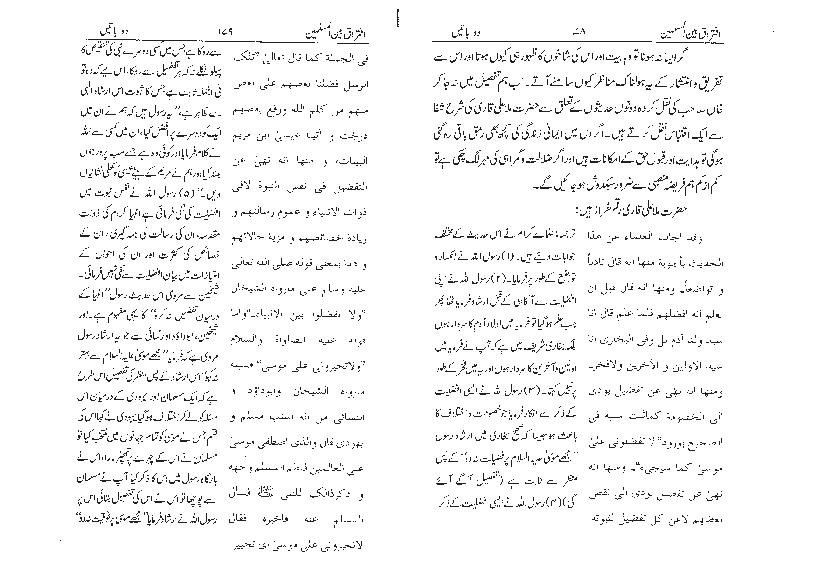 افتراق بین المسلمین ۷۸ دو باتیں
گر ایسا نہ ہوتا تو وہابیت اور اس کی شاخوں کا ظہور ہی کیوں ہوتا اور اس سے
تفریق و انتشار کے یہ ہولناک مناظر کیوں سامنے آتے۔ اب ہم تفصیل میں نہ جا کر
خاں صاحب کی نقل کردہ دونوں حدیثوں کے تعلق سے حضرت ملا علی قاری کی شرح شفا
سے ایک اقتباس نقل کرتے ہیں۔ اگر اس میں ایمانی زندگی کی کچھ بھی رمق باقی رہ گئی
ہوگی تو ہدایت اور قبول حق کے امکانات ہیں اور اگر ضلالت و گمراہی کی مہر لگ چکی ہے تو
کم از کم ہم فریضہ منصبی سے ضرور سبکدوش ہو جائیں گے۔
حضرت ملا علی قاری رقمطراز ہیں:
وقد اجاب العلماء عن هذا
الحديث بأجوبة منها انه قال تادباً
و تواضعاً۔ ومنها انه قال قبل ان
يعلم انه افضلهم فلما علم قال انا
سيد ولد آدم بل وفى البخارى انا
سيد الاولين و الآخرين ولافخر۔
ومنها انه نهى عن تفضيل يودى
الى الخصومة كماثبت سببه فى
الصحيح بورود "لا تفضلونى على
موسىٰ كما سيجيء"۔ ومنها انه
نهى عن تفضيل يودى الى نقص
بعضهم لاعن كل تفضيل لثبوته
ترجمہ: علمائے کرام نے اس حدیث کے مختلف
جوابات دیئے ہیں۔ (۱) رسول اللہ نے انکسار و
تواضع کے طور پر فرمایا۔ (۲) رسول اللہ نے اپنی
افضلیت سے آگاہی کے قبل ارشاد فرمایا تھا پھر
جب علم ہو گیا تو فرمایا میں اولاد آدم کا سردار ہوں
بلکہ بخاری شریف میں ہے کہ آپ نے فرمایا میں
اولین و آخرین کا سردار ہوں اور یہ میں فخر کے طور
پر نہیں کہتا۔ (۳) رسول اللہ نے ایسی افضلیت
کے ذکر سے انکار فرمایا جو خصومت و اختلاف کا
باعث ہو جیسا کہ صحیح بخاری میں ارشاد رسول
"مجھے موسیٰ علیہ السلام پر فضیلت نہ دو" کے پس
منظر سے ثابت ہے (تفصیل آگے آئے
گی) (۴) رسول اللہ نے ایسی فضیلت کے ذکر
افتراق بین المسلمین ۱۷۹ دو باتیں
فى الجملة كما قال تعالىٰ "تلك
الرسل فضلنا بعضهم على بعض
منهم من كلم الله ورفع بعضهم
درجٰت و آتينا عيسىٰ ابن مريم
البينات، و منها انه نهى عن
التفضيل فى نفس النبوة لافى
ذوات الانبياء و عموم رسالتهم و
زيادة خصائصهم و مزية حالاتهم
و هذا بمعنى قوله صلى الله تعالى
عليه وسلم على مارواه الشيخان
"ولا تفضلوا بين الانبياء" واما
قوله عليه الصلوٰة والسلام
"لاتخيرونى على موسىٰ" فسببه
مارواه الشيخان وابوداؤد و
النسائى من انه استب مسلم و
يهودى قال والذى اصطفى موسىٰ
على العالمين فلطم المسلم وجهه
و ذكرذالك للنبى ﷺ فسال
المسلم عنه فاخبره فقال
لاتخيرونى على موسىٰ اى تخيير
سے روکا ہے جس میں کسی دوسرے نبی کی تنقیص کا
پہلو نکلے نہ کہ ہر تفضیل سے روکا، اس لئے کہ وہ تو
فی الجملہ ثابت ہے جس کا ثبوت اس ارشاد الٰہی
سے ظاہر ہے "یہ رسول ہیں کہ ہم نے ان میں
ایک کو دوسرے پر افضل کیا، ان میں کسی سے اللہ
نے کلام فرمایا اور کوئی وہ ہے جسے سب پر درجوں
بلند کیا اور ہم نے مریم کے بیٹے عیسیٰ کو کھلی نشانیاں
دیں"۔ (۵) رسول اللہ نے نفس نبوت میں
افضلیت کی نفی فرمائی ہے انبیا کرام کی ذوات
مقدسہ، ان کی رسالت کی ہمہ گیری، ان کے
خصائص کی کثرت اور ان کی احوال کے
امتیازات میں بیان افضلیت سے نفی نہیں فرمائی۔
شیخین سے مروی اس حدیث رسول "انبیا کے
درمیان تفضیل نہ کرو" کا یہی مفہوم ہے۔ اور
شیخین، ابوداؤد اور نسائی سے جو یہ ارشاد رسول
مروی ہے کہ فرمایا "مجھے موسیٰ علیہ السلام سے بہتر
نہ کہو" اس ارشاد کے پس منظر کی تفصیل اس طرح
ہے کہ ایک مسلمان اور یہودی کے درمیان اس
مسئلہ کو لے کر اختلاف ہو گیا، یہودی نے کہا اس کی
قسم جس نے موسیٰ کو تمام جہانوں میں منتخب کیا تو
مسلمان نے اس کے چہرے پر تھپڑ مارا، اس نے
بارگاہ رسول میں اس کا ذکر کیا آپ نے مسلمان
سے پوچھا تو اس نے اس کی تفصیل بتائی اس پر
رسول اللہ نے ارشاد فرمایا "مجھے موسیٰ پر فوقیت نہ دو"